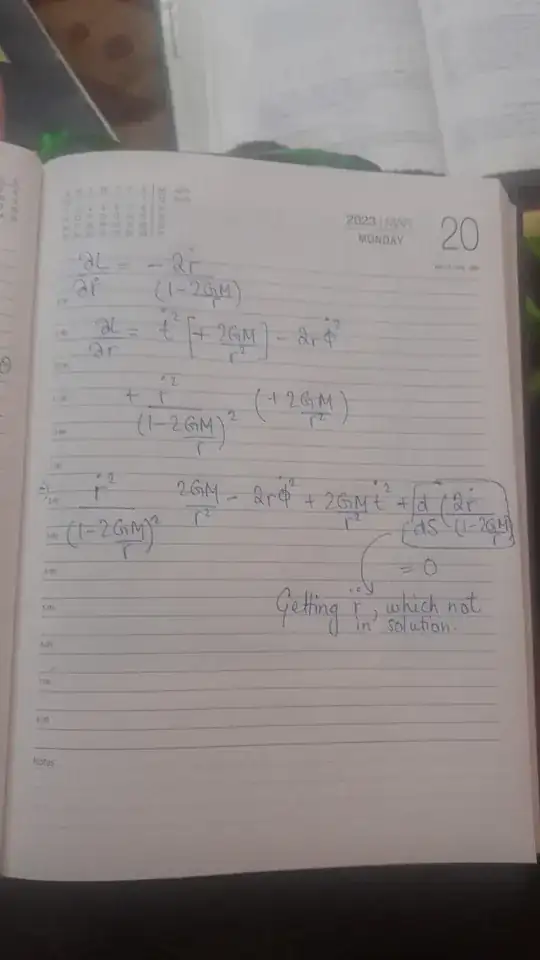 2023 | MAR 20
MONDAY
∂L/∂ṙ = - 2ṙ/(1-2GM/r)
∂L/∂r = ṫ² [+ 2GM/r²] - 2rφ̇²
+ ṙ²/(1-2GM/r)² (+2GM/r²)
⇒ ṙ²/(1-2GM/r)² 2GM/r² - 2rφ̇² + 2GM/r² ṫ² + d/dS (2ṙ/(1-2GM/r)
= 0
Getting r̈, which not
in solution.
Notes